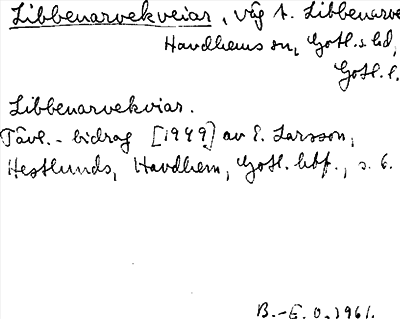 Libbenarvekveiar, väg t. Libbenarve
Havdhems sn, Gotl. s. hd,
Gotl. l.
Libbenarvekviar.
Tävl.-bidrag [1949] av E. Larsson,
Hestlunds, Havdhem, Gotl. hbf., s. 6.
B.-E. O. 1961.